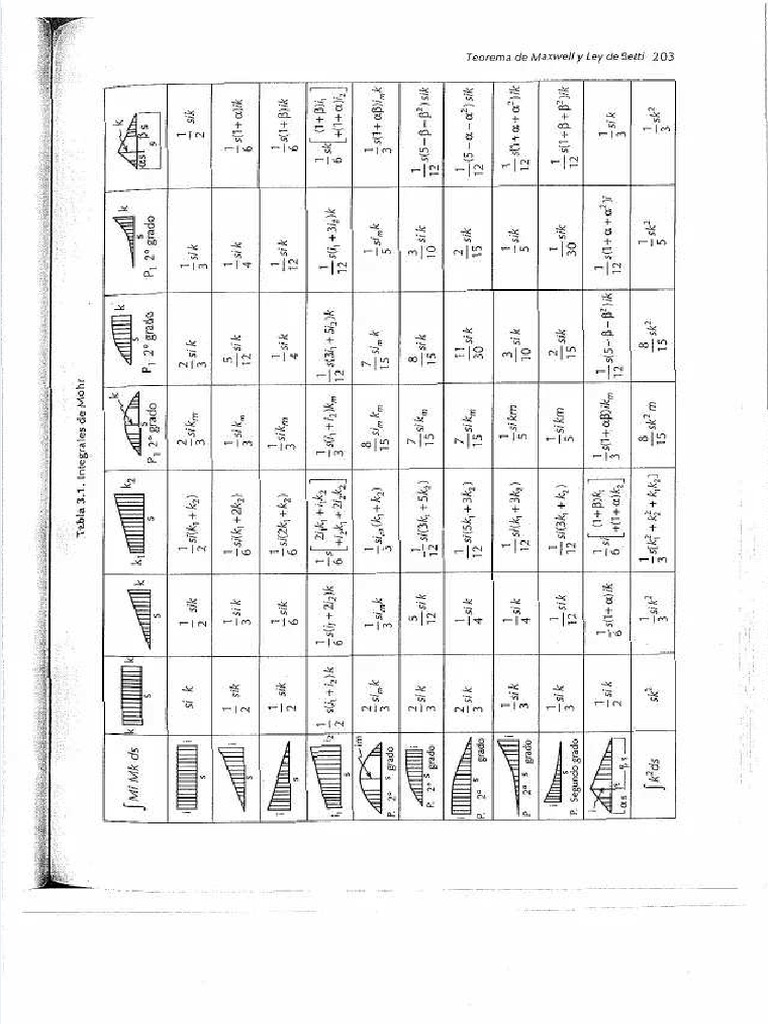 Teorema de Maxwell y Ley de Betti 203
Tabla 3.1. Integrales de Mohr
∫Mi Mk ds | k s k | s k | k₁ s k₂ | k s P₁ 2° grado | k s P₁ 2° grado | k s P₁ 2° grado | k αs βs s
i s | si k | 1/2 sik | 1/2 si(k₁ + k₂) | 2/3 sikₘ | 2/3 si k | 1/3 si k | 1/2 sik
i s | 1/2 sik | 1/3 si k | 1/6 si(k₁ + 2k₂) | 1/3 sikₘ | 5/12 sik | 1/4 si k | 1/6 s(1 + α)ik
i s | 1/2 sik | 1/6 sik | 1/6 si(2k₁ + k₂) | 1/3 sikₘ | 1/4 sik | 1/12 si k | 1/6 s(1 + β)ik
i₁ s i₂ | 1/2 s(i₁ + i₂)k | 1/6 s(i₁ + 2i₂)k | 1/6 s[2i₁k₁ + i₁k₂ + i₂k₁ + 2i₂k₂] | 1/3 s(i₁ + i₂)kₘ | 1/12 s(3i₁ + 5i₂)k | 1/12 s(i₁ + 3i₂)k | 1/6 sk[(1 + β)i₁ + (1 + α)i₂]
im P. 2° s grado | 2/3 siₘk | 1/3 siₘk | 1/3 siₘ(k₁ + k₂) | 8/15 siₘkₘ | 7/15 siₘk | 1/5 siₘk | 1/3 s(1 + αβ)iₘk
i P. 2° s grado | 2/3 si k | 5/12 si k | 1/12 si(3k₁ + 5k₂) | 7/15 sikₘ | 8/15 sik | 3/10 si k | 1/12 s(5 − β − β²)sik
i P. 2° s grado | 2/3 si k | 1/4 sik | 1/12 si(5k₁ + 3k₂) | 7/15 sikₘ | 11/30 sik | 2/15 sik | 1/12 (5 − α − α²)sik
i P 2° s grado | 1/3 sik | 1/4 sik | 1/12 si(k₁ + 3k₂) | 1/5 sikm | 3/10 sik | 1/5 sik | 1/12 s(1 + α + α²)ik
i P. Segundo grado s | 1/3 si k | 1/12 si k | 1/12 si(3k₁ + k₂) | 1/5 sikm | 2/15 sik | 1/30 sik | 1/12 s(1 + β + β²)ik
i αs βs s | 1/2 si k | 1/6 s(1 + α)ik | 1/6 si[(1 + β)k₁ + (1 + α)k₂] | 1/3 s(1 + αβ)ikₘ | 1/12 s(5 − β − β²)ik | 1/12 s(1 + α + α²)i | 1/3 si k
∫k²ds | sk² | 1/3 sik² | 1/3 s(k₁² + k₂² + k₁k₂] | 8/15 sk²m | 8/15 sk² | 1/5 sk² | 1/3 sk²